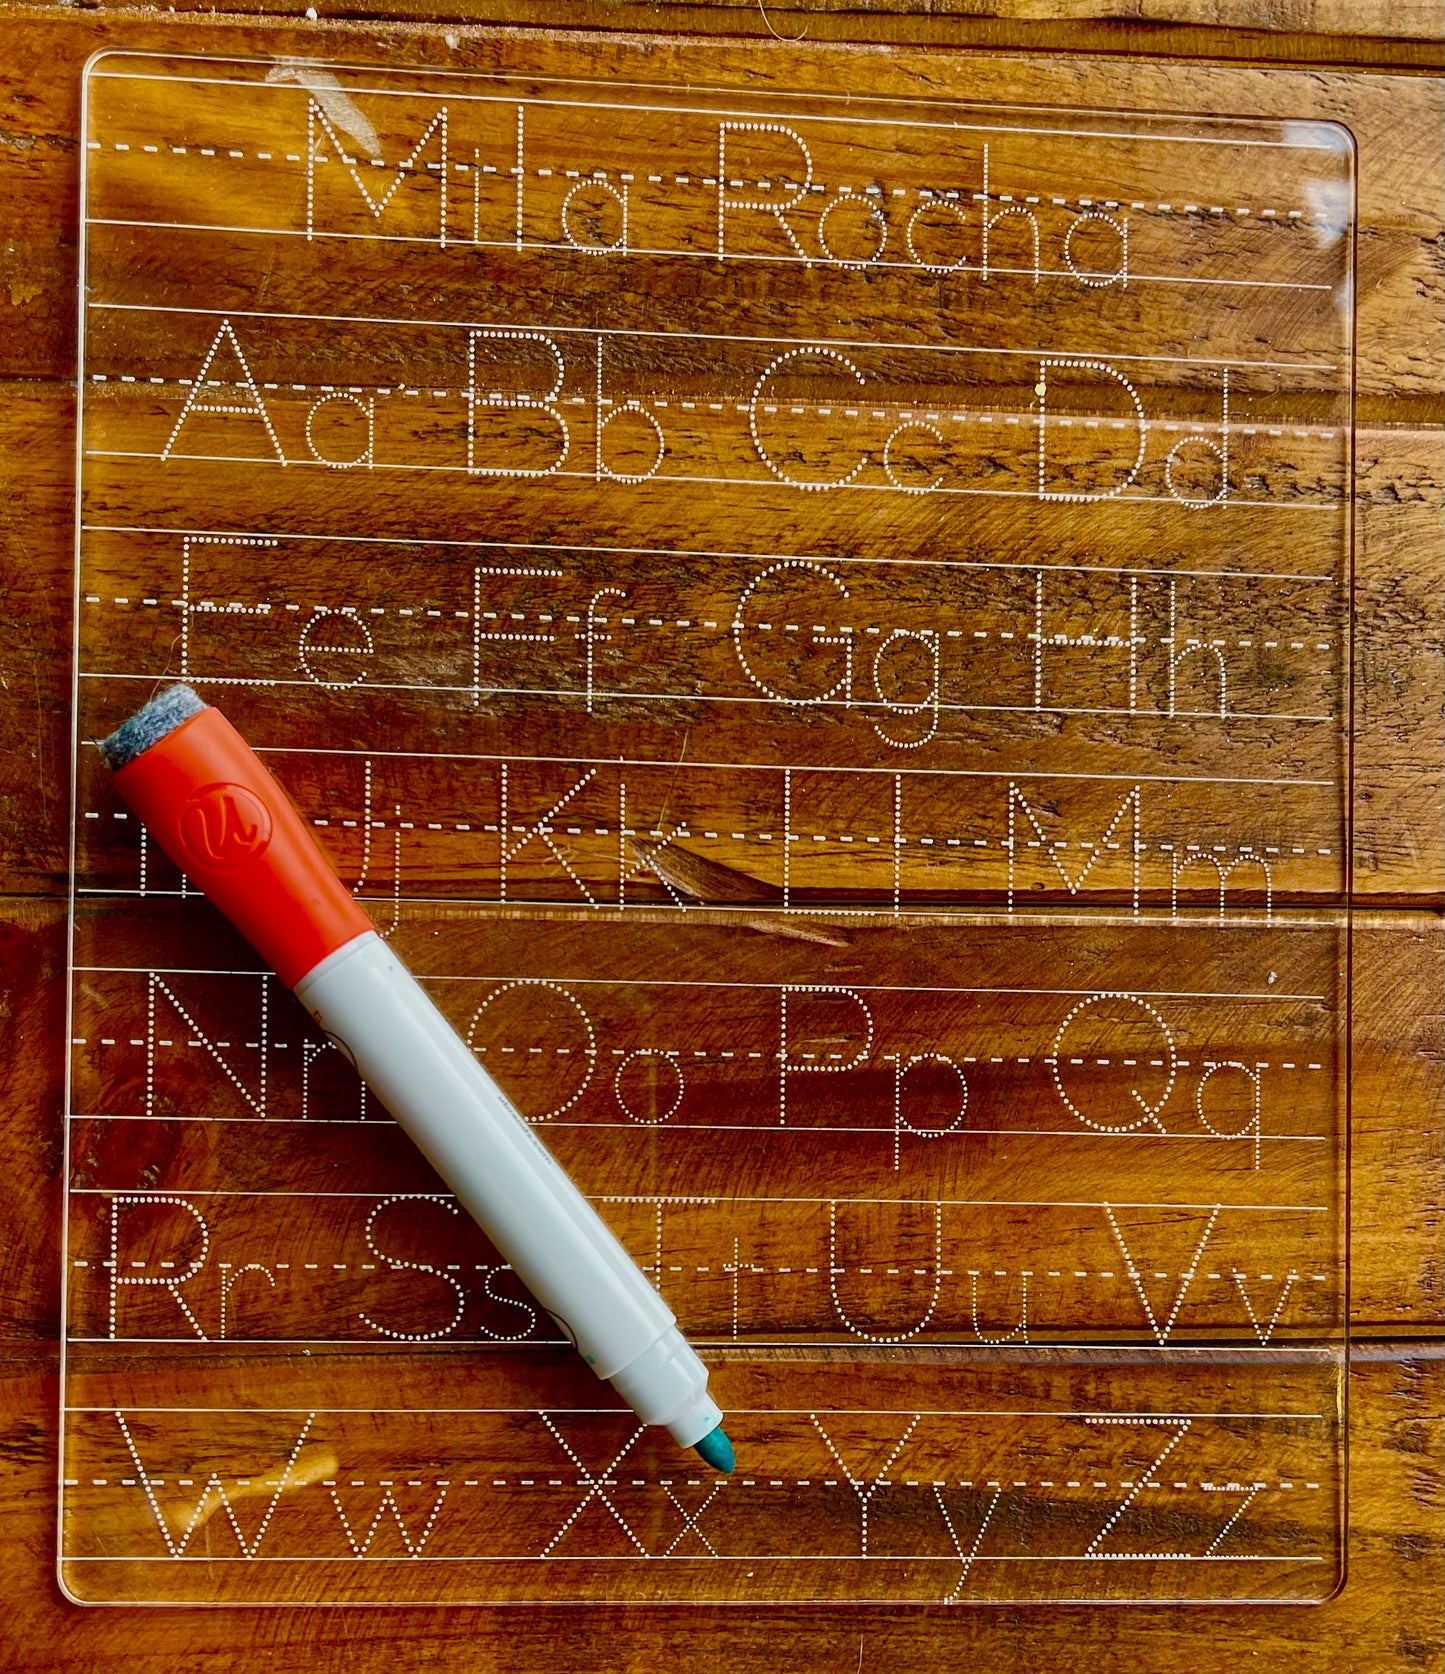 Mila Rocha
Aa Bb Cc Dd
Ee Ff Gg Hh
Ii Jj Kk Ll Mm
Nn Oo Pp Qq
Rr Ss Tt Uu Vv
Ww Xx Yy Zz